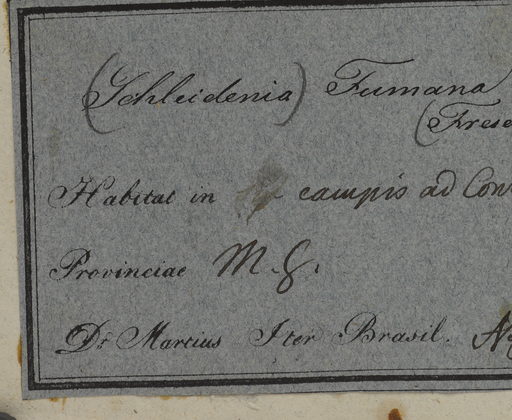 (Schleidenia) Fumana
(Frese
Habitat in campis ad Con
Provinciae M. G.
Dr Martius Iter Brasil. No